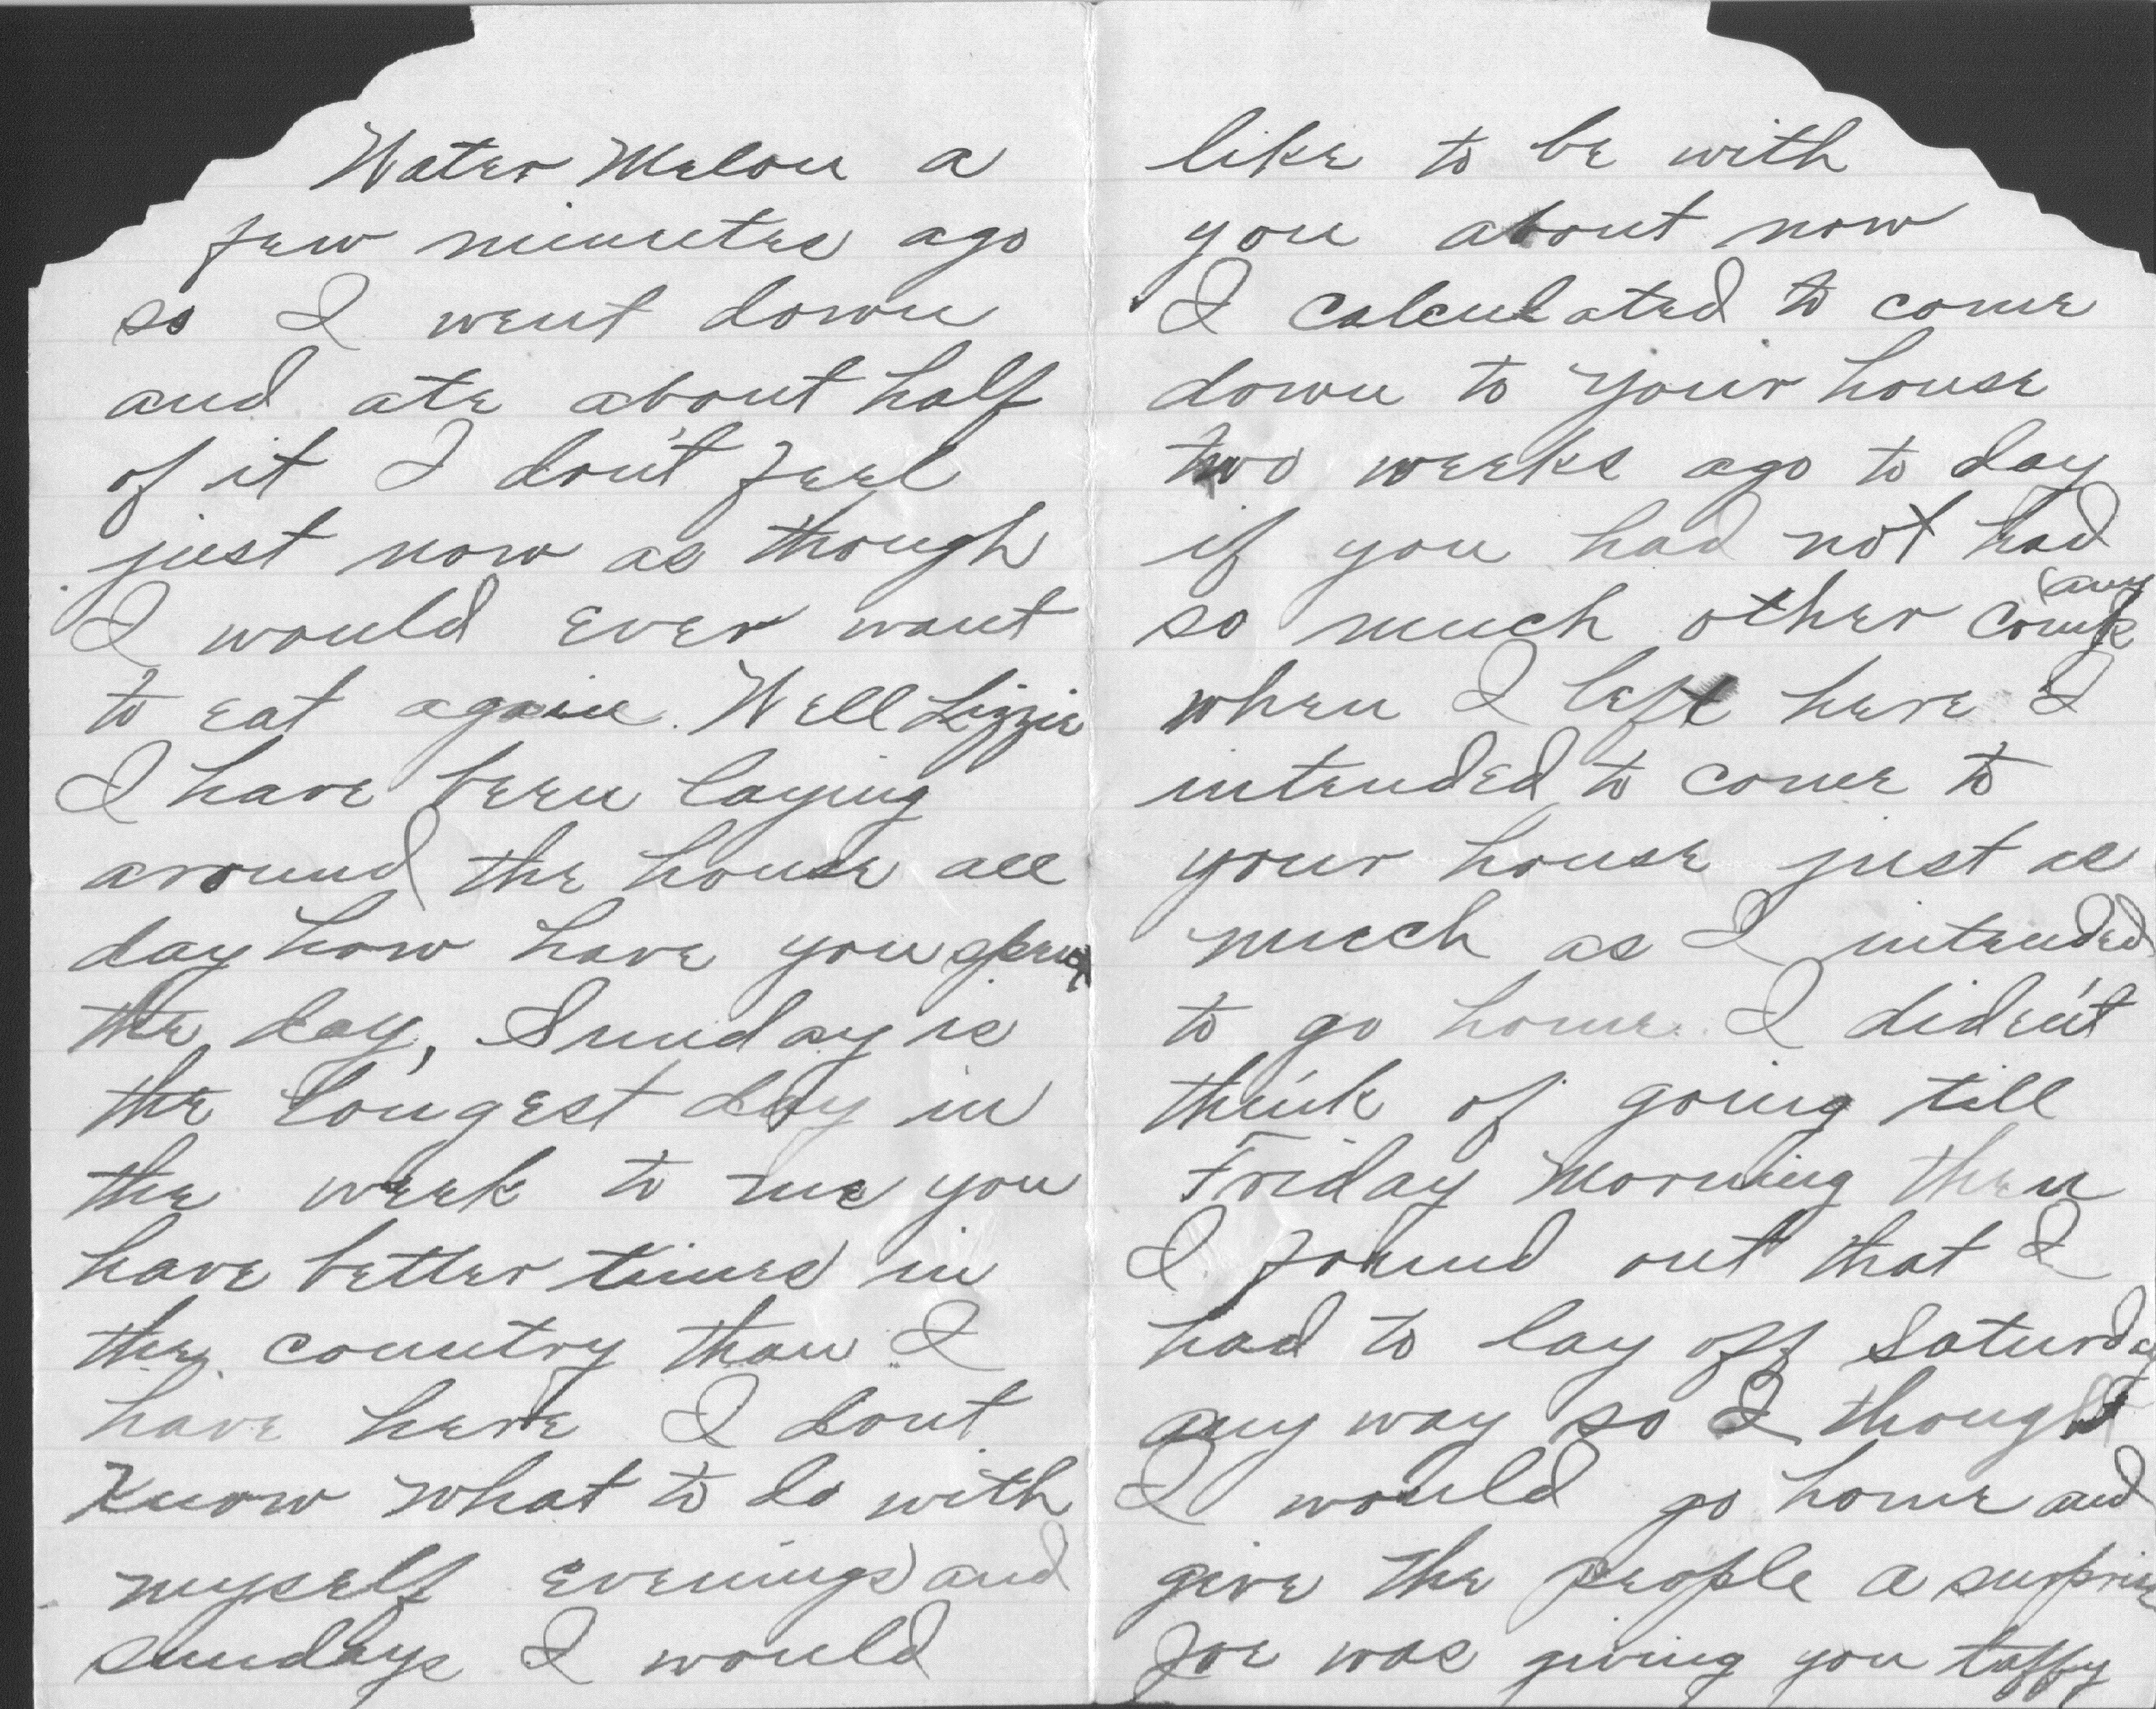 Water Melon a
few minutes ago
so I went down
and ate about half
of it I don't feel
just now as though
I would ever want
to eat again. Well Lizzie
I have been laying
around the house all
day how have you spent
the day, Sunday is
the longest day in
the week to me you
have better times in
the country than I
have here I dont
Know what to do with
myself evenings and
sundays I would
like to be with
you about now
I calculated to come
down to your house
two weeks ago to day
if you had not had
so much other Comp
any
when I left here I
intended to come to
your house just as
much as I intended
to go home. I did'ent
think of going till
Friday Morning then
I found out that I
had to lay off Saturday
any way so I thought
I would go home and
give the people a surprise
Joe was giving you taffy